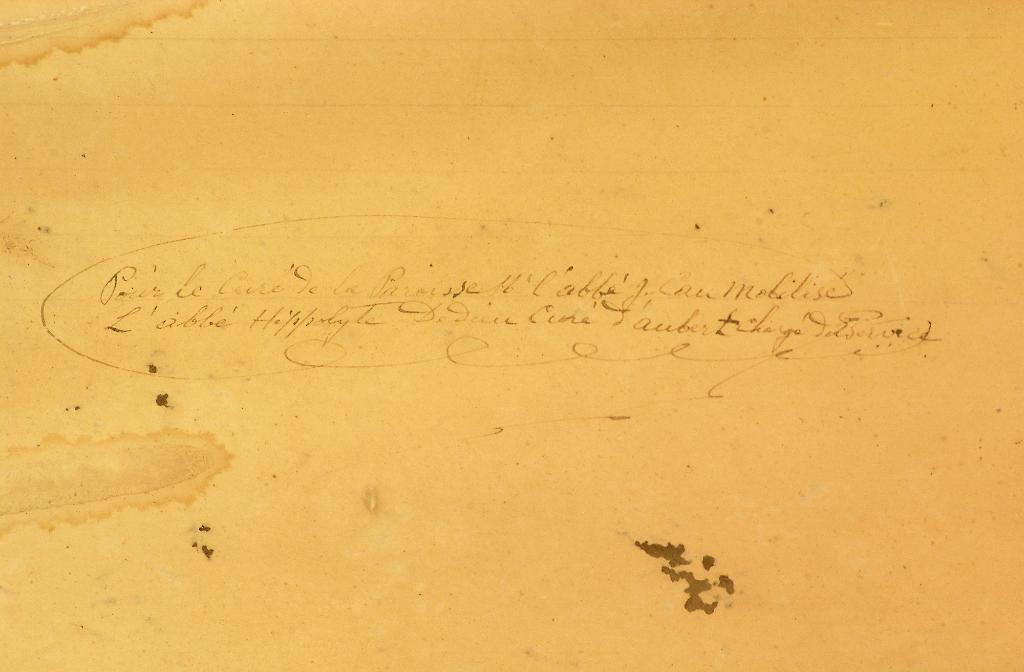 Pour le Curé de la Paroisse Mr l'abbé J. Cau Mobilisé
L'abbé Hippolyte Dedieu Curé d'aubert chargé du Service